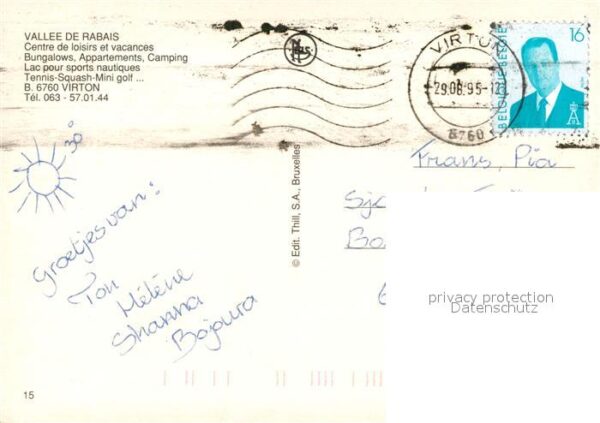 VALLEE DE RABAIS
Centre de loisirs et vacances
Bungalows, Appartements, Camping
Lac pour sports nautiques
Tennis-Squash-Mini golf ...
B. 6760 VIRTON
Tél. 063 - 57.01.44
VIRTON
29.08.95-12
6760
16
BELGIQUE-BELGIË
30°
Groetjes van:
Ton
Hélène
Shanna
Bojoura
Frans, Pia
© Edit. Thill, S.A., Bruxelles
privacy protection
Datenschutz
15